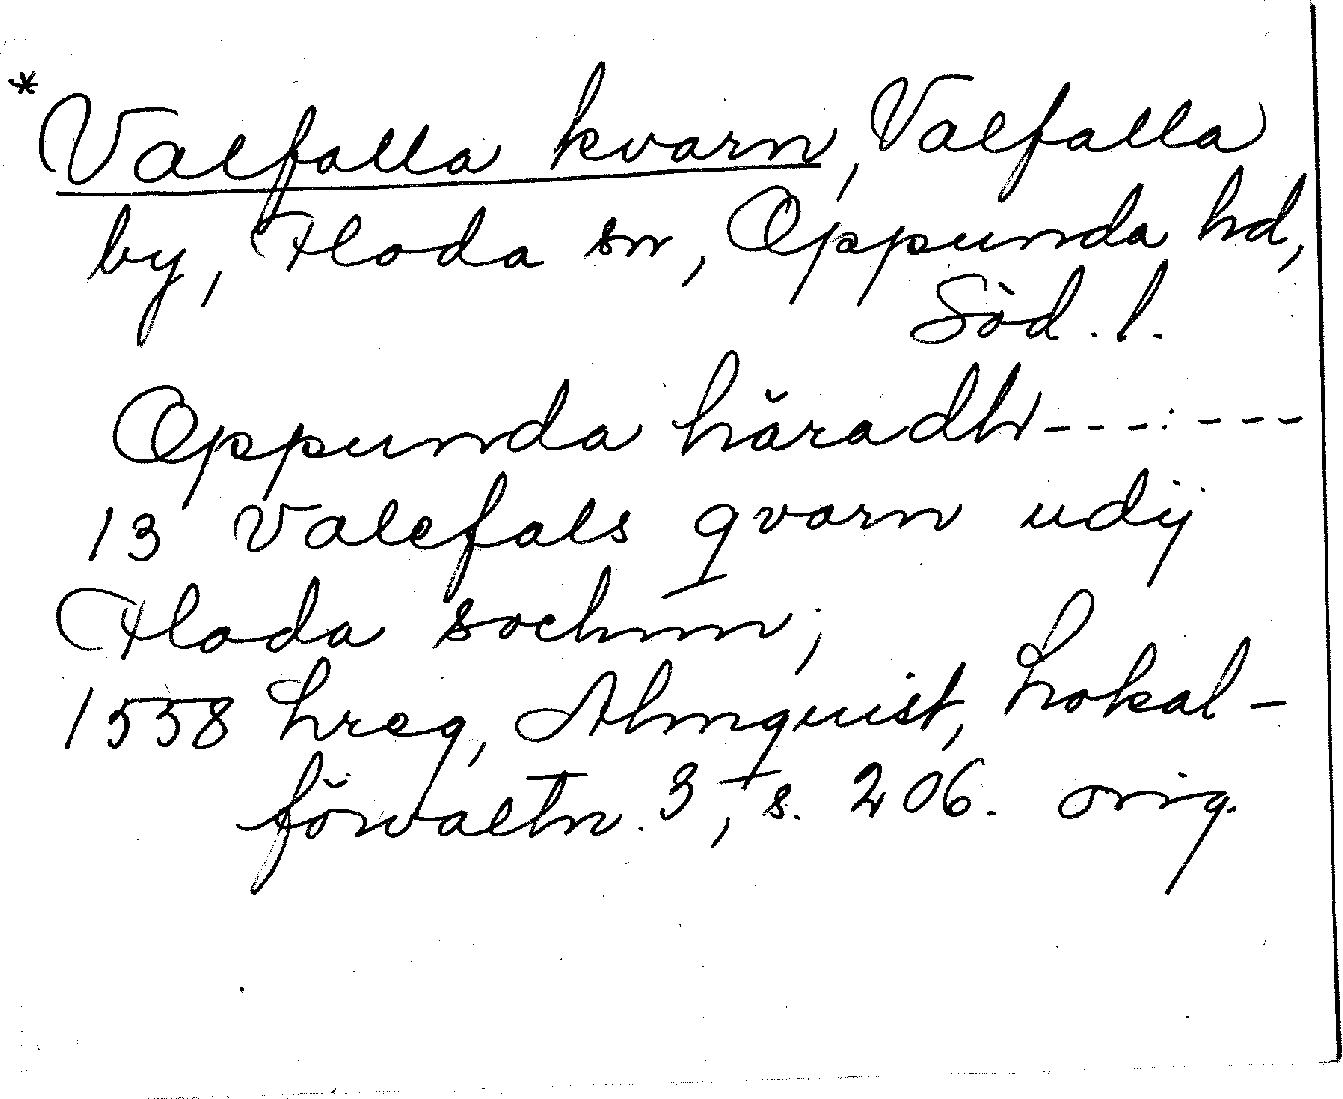 *Valfalla kvarn, Valfalla
by, Floda sn, Oppunda hd,
Söd. l.
Oppunda häradh - - - : - - -
13 Valefals qvarn udij
Floda sochnn;
1558 hreg, Almquist, Lokal-
förvaltn. 3, s. 206. orig.